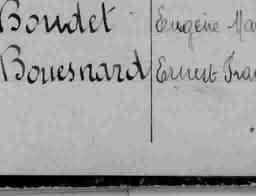 Boudet Eugène Ma
Bouesnard Ernest Fra